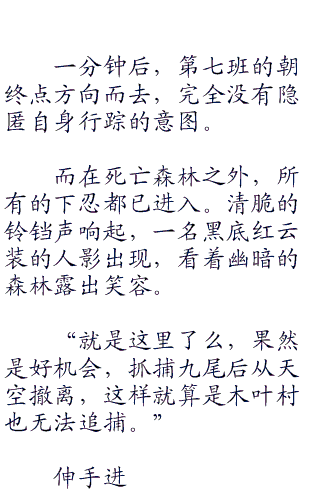 一分钟后，第七班的朝
终点方向而去，完全没有隐
匿自身行踪的意图。
而在死亡森林之外，所
有的下忍都已进入。清脆的
铃铛声响起，一名黑底红云
装的人影出现，看着幽暗的
森林露出笑容。
“就是这里了么，果然
是好机会，抓捕九尾后从天
空撤离，这样就算是木叶村
也无法追捕。”
伸手进